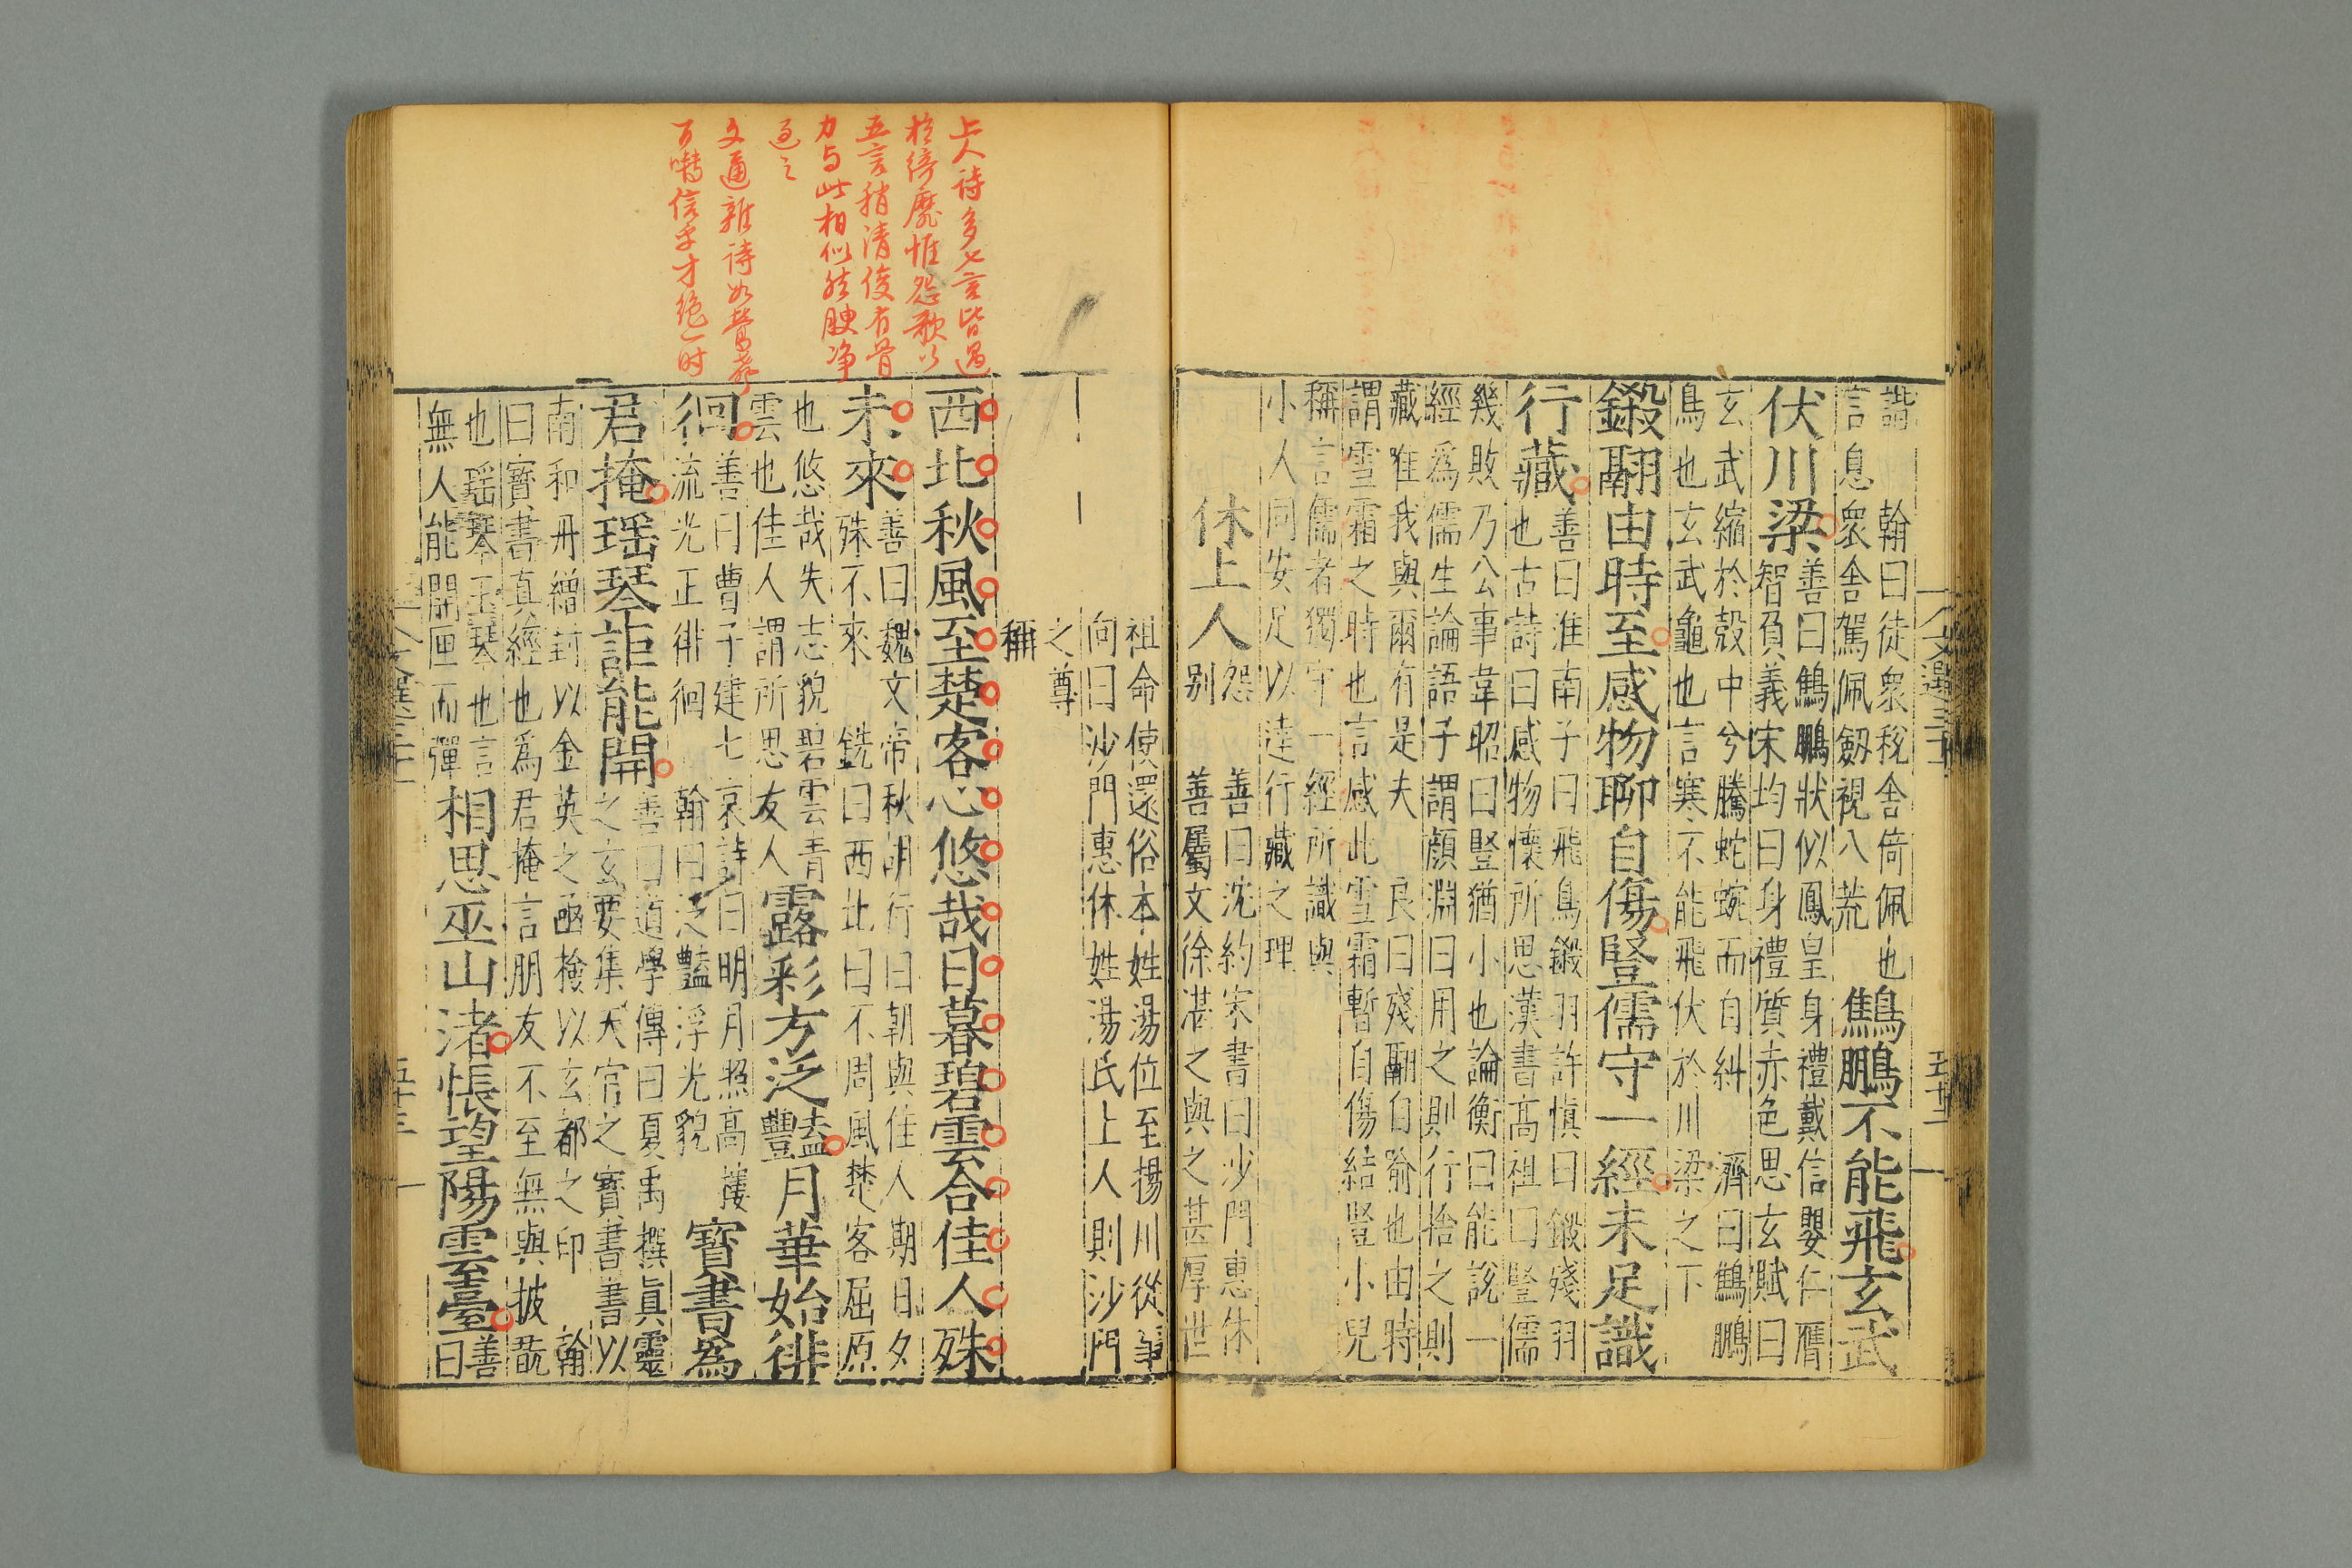 諧　翰曰徒衆稅舍倚佩也
言息衆舍駕佩劒視八荒
鷦鵬不能飛玄武
伏川梁
善曰鷦鵬狀似鳳皇身禮戴信嬰仁膺
智負義宋均曰身禮質赤色思玄賦曰
玄武縮於殼中兮騰蛇蜿而自糾　濟曰鷦鵬
鳥也玄武龜也言寒不能飛伏於川梁之下
鎩翮由時至感物聊自傷豎儒守一經未足識
行藏
善曰淮南子曰飛鳥鎩羽許慎曰鎩殘羽
也古詩曰感物懷所思漢書髙祖曰豎儒
幾敗乃公事韋昭曰豎猶小也論衡曰能說一
經爲儒生論語子謂顔淵曰用之則行捨之則
藏唯我與爾有是夫　良曰殘翮自喻也由時
謂雪霜之時也言感此雪霜暫自傷結豎小兒
稱言儒者獨守一經所識與
小人同安足以達行藏之理
休上人
怨别
善曰沈約宋書曰沙門惠休
善屬文徐湛之與之甚厚世
祖命使還俗本姓湯位至揚川從事
向曰沙門惠休姓湯氏上人則沙門
之尊
稱
西北秋風至楚客心悠哉日暮碧雲合佳人殊
未來
善曰魏文帝秋胡行曰朝與佳人期日夕
殊不來　銑曰西北曰不周風楚客屈原
也悠哉失志貌碧雲青
雲也佳人謂所思友人
露彩方泛豔月華始徘
徊
善曰曹子建七哀詩曰明月照高樓
流光正徘徊　翰曰泛豔浮光貌
寳書爲
君掩瑶琴詎能開
善曰道學傳曰夏禹撰眞靈
之玄要集天官之寳書書以
南和丹繒封以金英之函檢以玄都之印　翰
曰寳書真經也爲君掩言朋友不至無與披翫
也瑶琴玉琴也言
無人能開匣而彈
相思巫山渚悵望陽雲臺
善
曰
上人詩多七言皆過
於綺靡惟怨歌以
五言稍清俊有骨
力与此相似然腴净
過之
文通雜詩如鶯
百囀信乎才絶一时